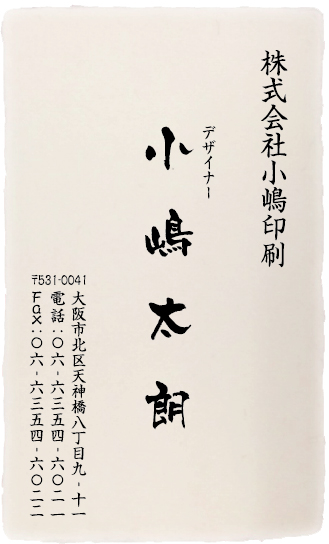 株式会社小嶋印刷
デザイナー
小嶋太朗
大阪市北区天神橋八丁目九-十一
電話:〇六-六三五四-六〇二一
Fax:〇六-六三五四-六〇二二
〒531-0041